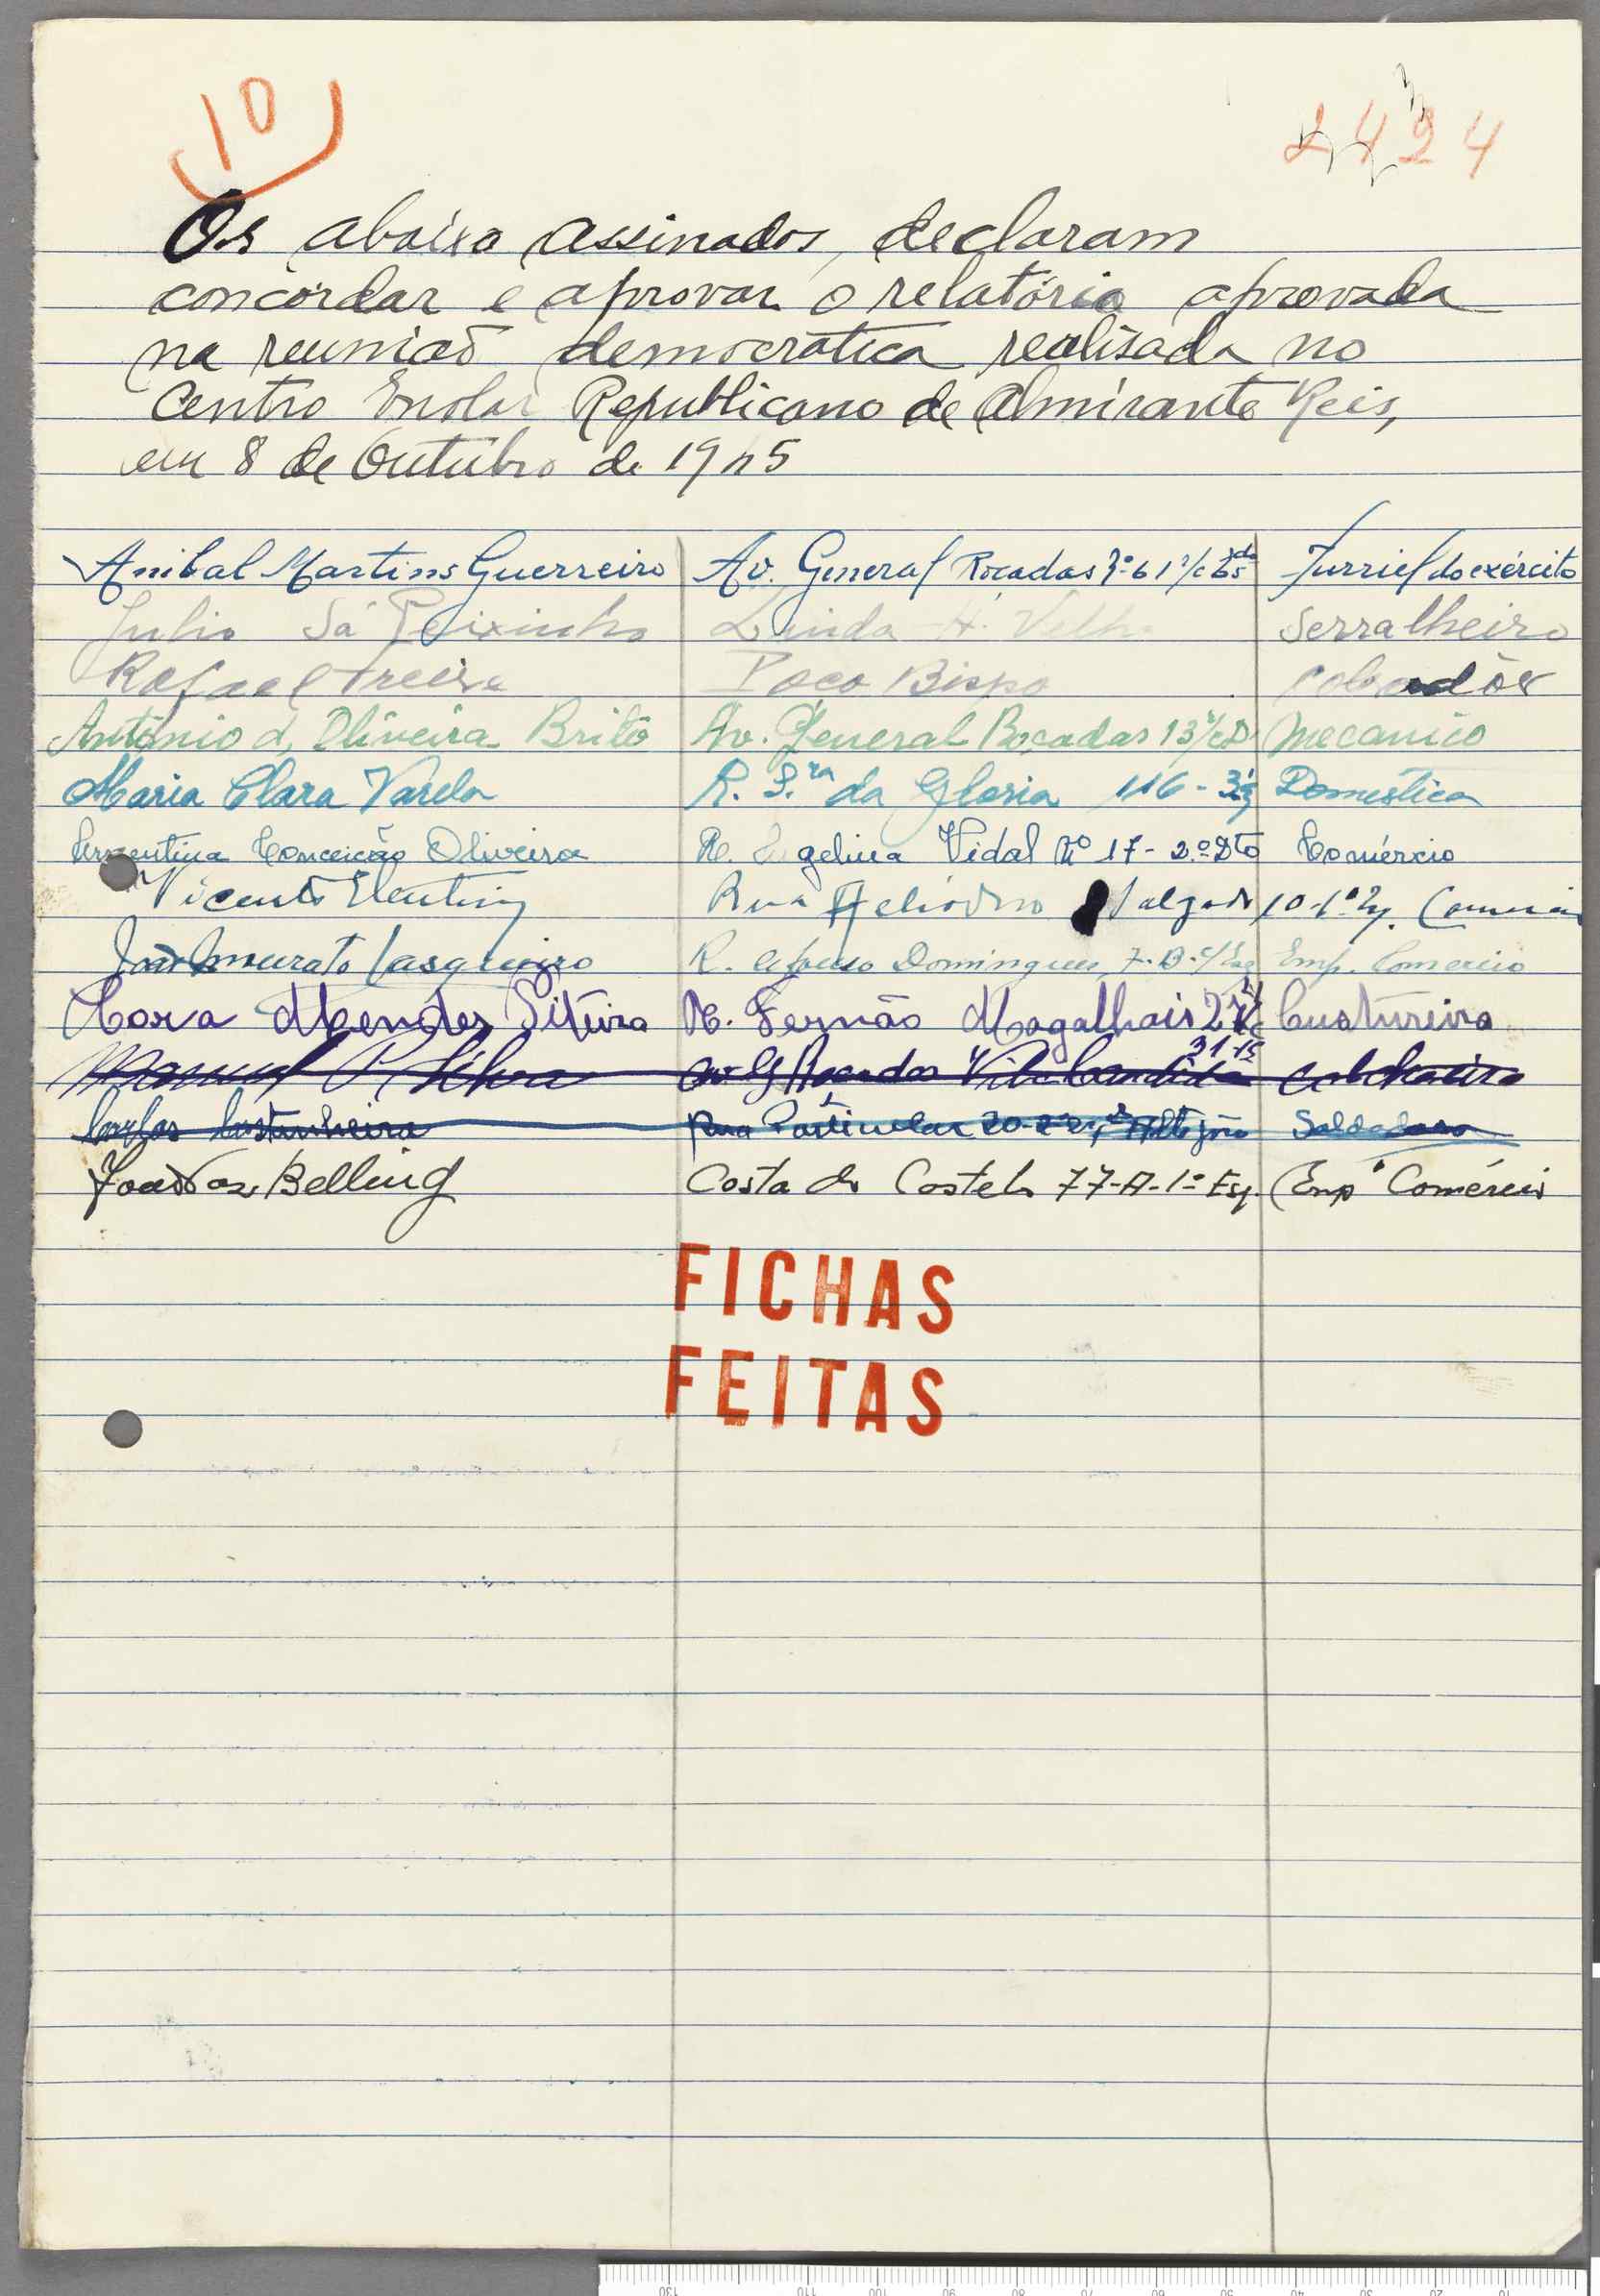 10
2424
Os abaixo assinados, declaram
concordar e aprovar o relatório aprovada
na reunião democrática realisada no
Centro Escolar Republicano de Almirante Reis,
em 8 de Outubro de 1945
Anibal Martins Guerreiro Av. General Roçadas Furriel do exército
Julio Sá Peixinho Linda A. Velha Serralheiro
Rafael Freire Poço Bispo
António d' Oliveira Brito Av. General Roçadas 13 r/c D Mecanico
Maria Clara Varela R. S.ra da Gloria 116 - Domestica
Conceição Oliveira R. Angelina Vidal Nº 17 - 2.º Dto Comércio
Vicente Rua Heliodoro Salgado 10-1º
João Murato R. Afonso Domingues, 7. Emp. Comercio
Mendes R. Fernão Magalhais Custureira
31-
Manuel P. Silva Av G Roçadas Vila Candida Colchoeiro
Carlos Castanheira Rua Particular
João Vaz Belling Costa do Castelo 77-A-1º Esq. Emp Comércio
FICHAS
FEITAS